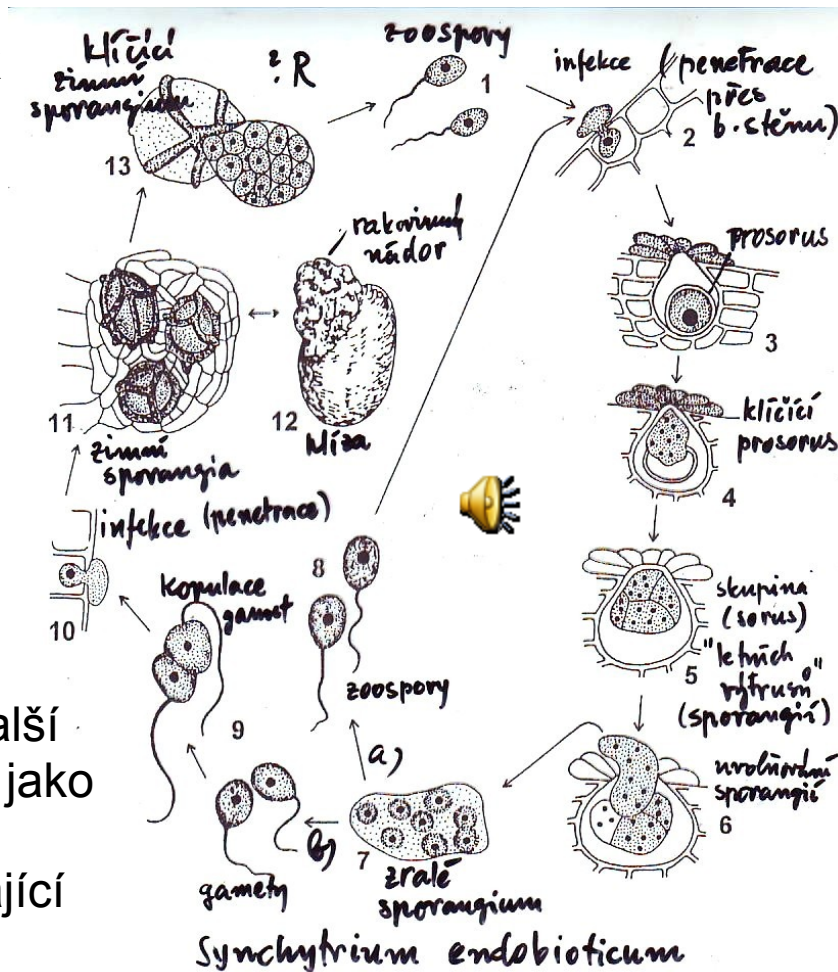 klíčící
zimní
sporangium
13
?R
zoospory
1
infekce (penetrace
přes
b. stěnu)
2
prosorus
3
klíčící
prosorus
4
skupina
(sorus)
"letních
výtrusů"
(sporangií)
5
uvolňování
sporangií
6
7
zralé
sporangium
a)
b)
zoospory
8
gamety
kopulace
gamet
9
infekce (penetrace)
10
11
zimní
sporangia
rakovinný
nádor
12
hlíza
alší
jako
ající
Synchytrium endobioticum